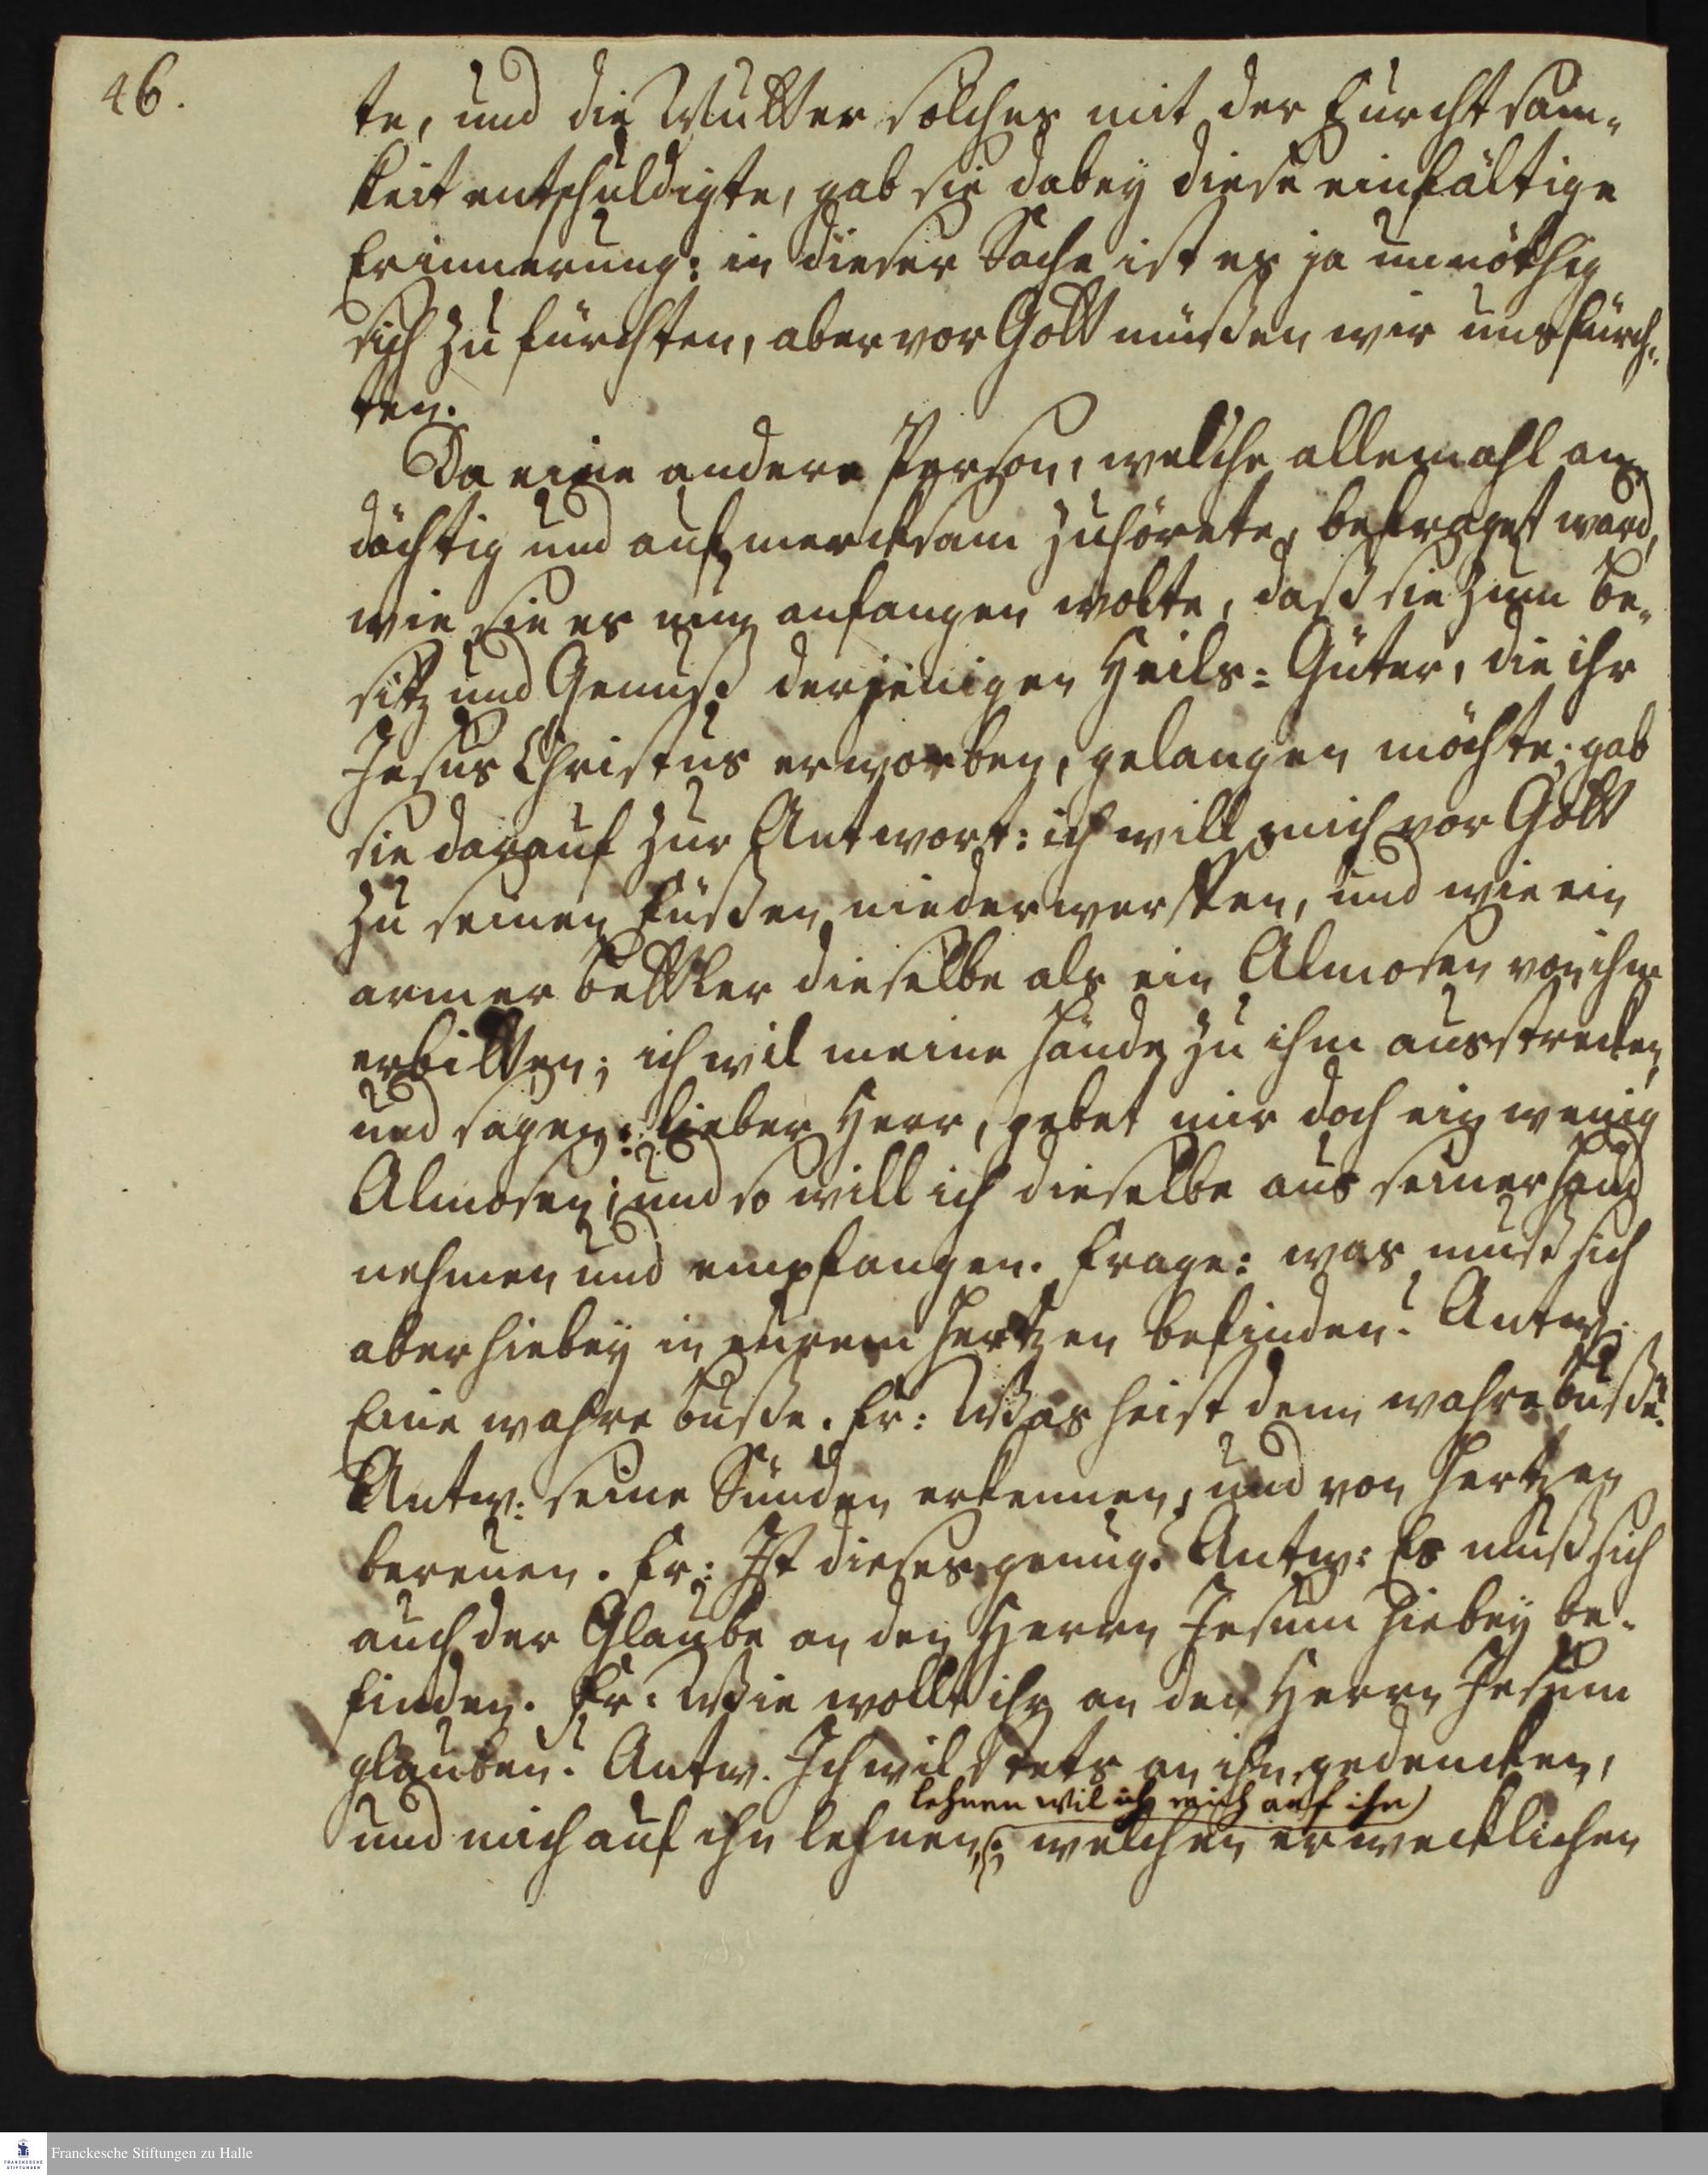 46.
te, und die Mutter solches mit der Furchtsam-
keit entschuldigte, gab sie dabey diese einfältige
Erinnerung: in dieser Sache ist es ja unnöthig
sich zu fürchten, aber vor Gott müßen wir uns fürch-
ten.
Da eine andere Person, welche allemahl an-
dächtig und aufmercksam zuhörete, befraget ward,
wie sie es nun anfangen wolte, daß sie zum Be-
sitz und Genuß derjenigen Heils-Güter, die ihr
Jesus Christus erworben, gelangen möchte; gab
sie darauf zur Antwort: ich will mich vor Gott
zu seinen Füßen niederwerffen, und wie ein
armer Bettler dieselbe als ein Almosen von ihm
erbitten; ich wil meine Hände zu ihm ausstrecken,
und sagen: lieber Herr, gebet mir doch ein wenig
Almosen; und so will ich dieselbe aus seiner Hand
nehmen und empfangen. Frage: was muß sich
aber hiebey in eurem Hertzen befinden? Antw:
Eine wahre Buße. Fr: Was heist denn wahre Buße?
Antw: seine Sünden erkennen, und von Hertzen
bereuen. Fr: Ist dieses genug? Antw: Es muß sich
auch der Glaube an den Herrn Jesum hiebey be-
finden. Fr: Wie wollt ihr an den Herrn Jesum
glauben? Antw. Ich wil stets an ihn gedencken,
lehnen wil ich mich auf ihn)
und mich auf ihn lehnen, (; welchen erwecklichen
Franckesche Stiftungen zu Halle
FRANCKESCHE STIFTUNGEN